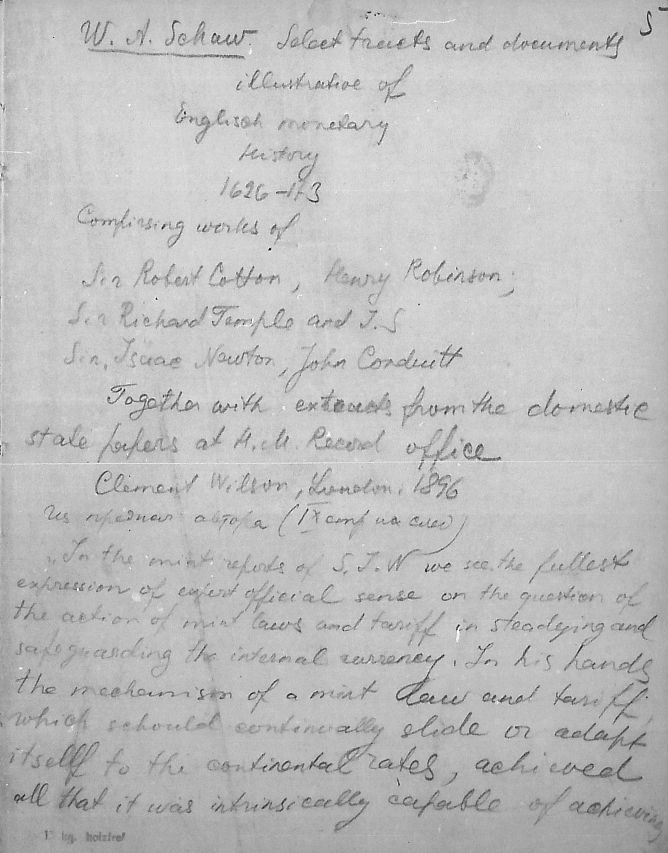 5
W. A. Schaw. Select tracts and documents
illustrative of
Englisch monetary
History
1626-1
Comprising works of
Sir Robert Cotton, Henry Robinson;
Sir Richard Temple and J.S
Sir, Isaac Newton, John Conduitt
Together with extracts from the domestic
state papers at H.M. Record office
Clement Wilson, London, 1896
Из автора (IX стр
„In the mint reports of S.I.N we see the fullest
expression of expert official sense on the question of
the action of mint laws and tariff in steadying and
safeguarding the internal currency. In his hands
the mechanism of a mint law and tariff,
which schould continually slide or adapt
itsellf to the continental rates, achieved
all that it was intrinsically capable of achieving
kg. holzfrei